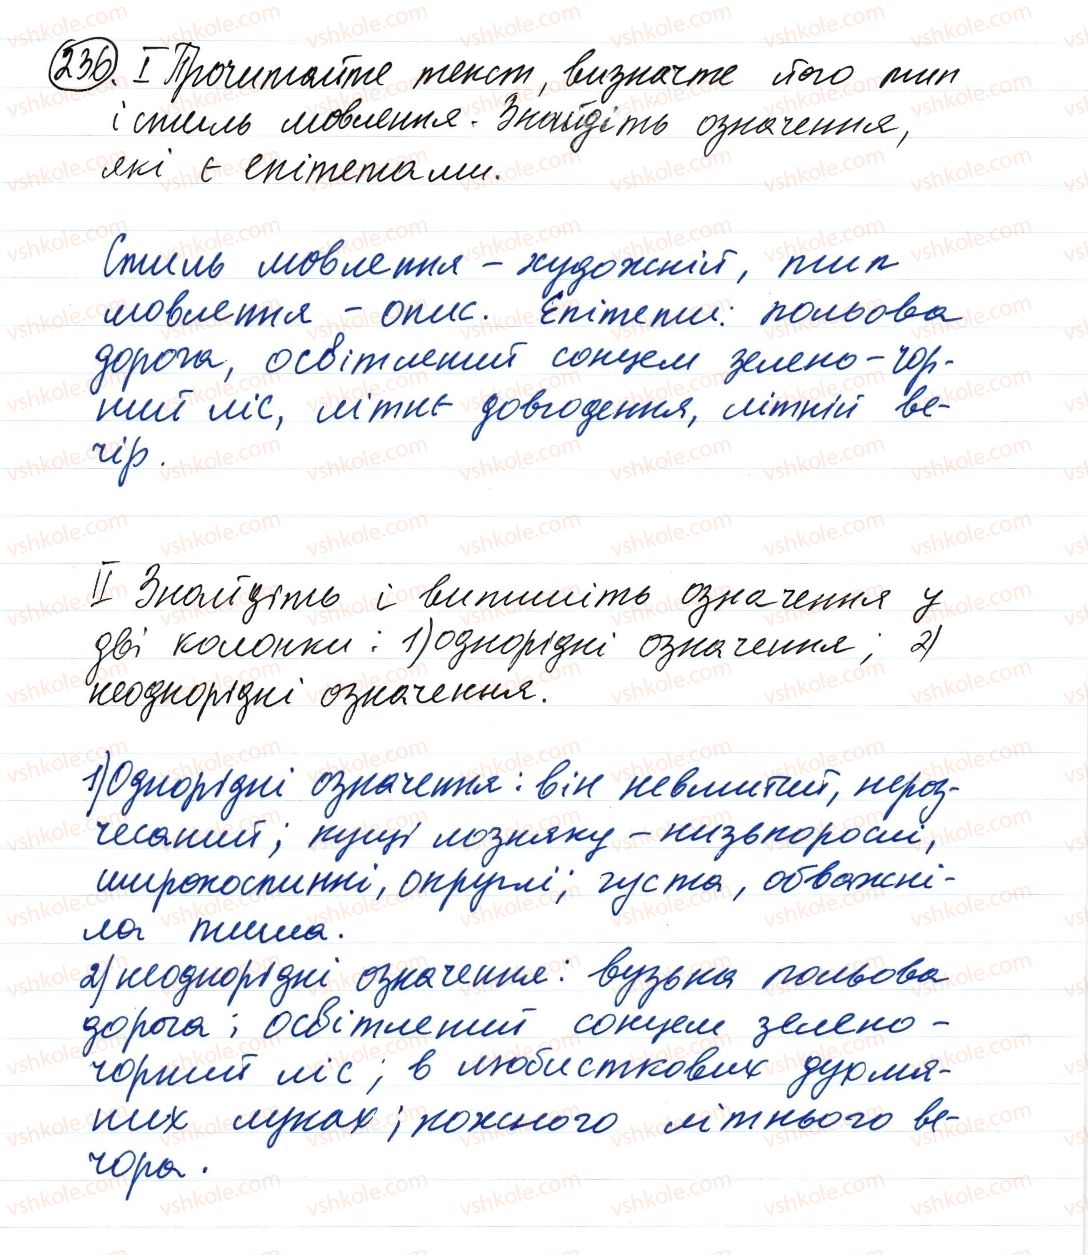 236. I Прочитайте текст, визначте його тип
і стиль мовлення. Знайдіть означення,
які є епітетами.
Стиль мовлення – художній, тип
мовлення – опис. Епітети: польова
дорога, освітлений сонцем зелено-чор-
ний ліс, літнє довгодення, літній ве-
чір.
II Знайдіть і випишіть означення у
дві колонки: 1) однорідні означення; 2)
неоднорідні означення.
1) Однорідні означення: він невмитий, нероз-
чесаний; кущі лозняку – низькорослі,
широкоспинні, округлі; густа, обважні-
ла тиша.
2) неоднорідні означення: вузька польова
дорога; освітлений сонцем зелено-
чорний ліс; в любисткових духмя-
них луках; кожного літнього ве-
чора.